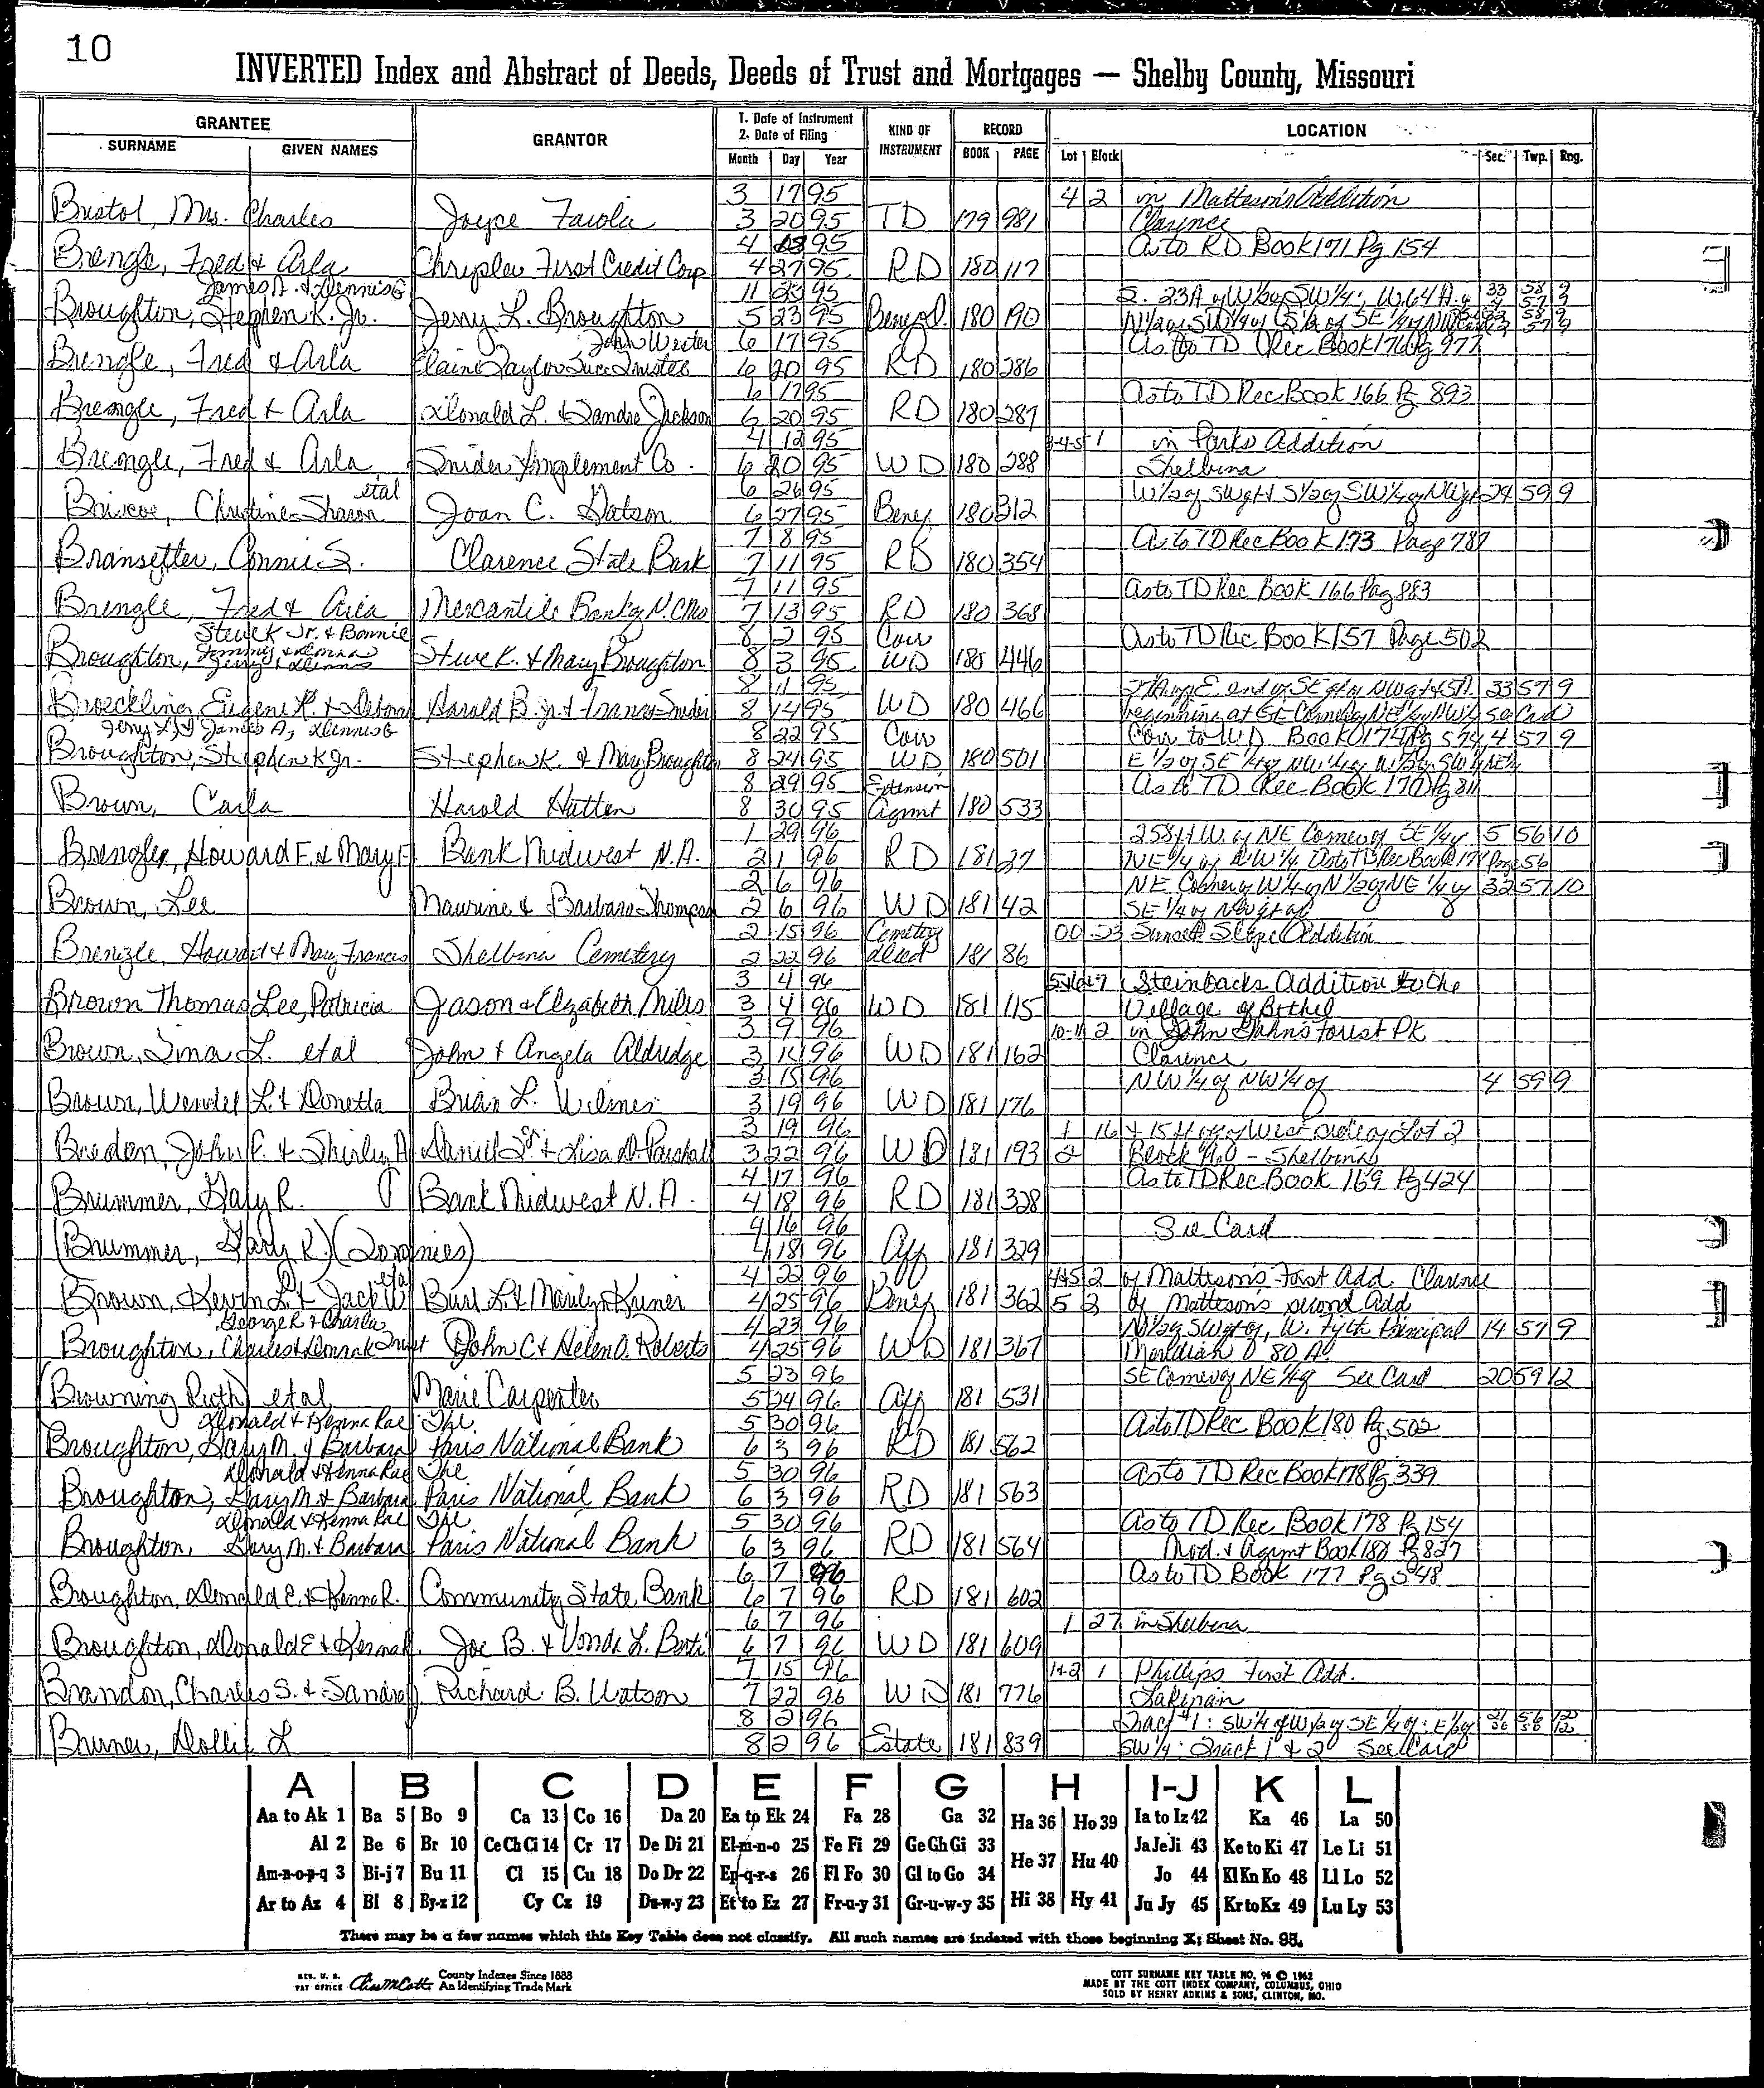 10
INVERTED Index and Abstract of Deeds, Deeds of Trust and Mortgages — Shelby County, Missouri
GRANTEE
SURNAME GIVEN NAMES
GRANTOR
1. Date of Instrument
2. Date of Filing
Month Day Year
KIND OF
INSTRUMENT
RECORD
BOOK PAGE
LOCATION
Lot Block Sec. Twp. Rng.
3 17 95 4 2 in Matteson's Addition
Bristol, Mrs. Charles Joyce 3 20 95 TD 179 981 Clarence
4 95 As to RD Book 171 Pg 154
Brengle, Fred & Arla Chrysler First Credit Corp 4 27 95 RD 180 117
James A. & Dennis G 11 23 95 33 58 9
Broughton, Stephen K. Jr. Jerry L. Broughton 5 23 95 180 190
John Wester 6 17 95 As to TD Rec Book 176 Pg 977
Brengle, Fred & Arla Elaine Taylor Succ Trustee 6 20 95 RD 180 286
6 17 95 As to TD Rec Book 166 Pg 893
Brengle, Fred & Arla Donald L. & Sandra Jackson 6 20 95 RD 180 287
4 12 95 3-4-5 1 in Parks Addition
Brengle, Fred & Arla Snider Implement Co. 6 20 95 WD 180 288 Shelbina
etal 6 26 95 W 1/2 of SW qt & S 1/2 of SW 1/4 of NW qt 24 59 9
Briscoe, Christine Sharon Joan C. Datson 6 27 95 Benef 180 312
7 8 95 As to TD Rec Book 173 Page 787
Bransetter, Connie S. Clarence State Bank 7 11 95 RD 180 354
7 11 95 As to TD Rec Book 166 Pag 883
Brengle, Fred & Arla Mercantile Bank of N.C. Mo 7 13 95 RD 180 368
Steve K Jr. & Bonnie 8 2 95 Corr As to TD Rec Book 157 Page 502
Broughton, Steve K. & Mary Broughton 8 3 95 WD 180 446
8 11 95 33 57 9
Broeckling, Eugene R. & Debora Harold B. Jr. & Frances Snider 8 14 95 WD 180 466 beginning at SE Corner of NE 1/4 of NW 1/4 See Card
Jerry L, & James A, Dennis G 8 22 95 Corr Corr to WD Book 174 Pg 574 4 57 9
Broughton, Stephen K Jr. Stephen K. & Mary Broughton 8 24 95 WD 180 501
8 29 95 Extension As to TD Rec Book 170 Pg 311
Brown, Carla Harold Hutten 8 30 95 Agmt 180 533
1 29 96 258ft W. of NE Corner of SE 1/4 of 5 56 10
Brengle, Howard F. & Mary F Bank Midwest N.A. 2 1 96 RD 181 27 NE 1/4 of NW 1/4 As to TD Rec Book 174 Page 56
2 6 96 NE Corner of W 1/4 of N 1/2 of NE 1/4 of 32 57 10
Brown, Lee Maurine & Barbara Thompson 2 6 96 WD 181 42 SE 1/4 of NW qt of
2 15 96 Cemetery 00 23 Sunset Slope Addition
Brengle, Howard & Mary Frances Shelbina Cemetery 2 22 96 deed 181 86
3 4 96 5&6&7 Steinbacks Addition to the
Brown Thomas Lee, Patricia Jason & Elizabeth Miles 3 4 96 WD 181 115 Village of Bethel
3 9 96 10-11 2 in John Forest PK
Brown, Tina L. etal John & Angela Aldridge 3 14 96 WD 181 162 Clarence
3 15 96 NW 1/4 of NW 1/4 of 4 59 9
Brown, Wendel L. & Donetta Brian L. Wilmes 3 19 96 WD 181 176
3 19 96 1 16 & 15 ft off of West side of Lot 2
Breden, John P. & Shirley A Daniel & Lisa D. 3 22 96 WD 181 193 2 Block - Shelbina
4 17 96 As to TD Rec Book 169 Pg 424
Brummer, Gary R. Bank Midwest N.A. 4 18 96 RD 181 328
4 16 96 See Card
(Brummer, Gary R.) 4 18 96 Aff 181 329
etal 4 22 96 4&5 2 of Matteson's First Add. Clarence
Brown, Kevin L. & Jack W Burl L. & Marilyn Kriner 4 25 96 Benef 181 362 5 3 of Matteson's second Add
George R & Charla 4 23 96 N 1/2 of SW qt of, W. Fifth Principal 14 57 9
Broughton, Charles & Donna K Trust John C & Helen O. Roberts 4 25 96 WD 181 367 Meridian 80 A.
5 23 96 SE Corner of NE 1/4 of See Card 20 59 12
(Browning Ruth) etal Marie Carpenter 5 24 96 Aff 181 531
Donald & Kenna Rae The 5 30 96 As to TD Rec. Book 180 Pg 502
Broughton, Gary M. & Barbara Paris National Bank 6 3 96 RD 181 562
Donald & Kenna Rae The 5 30 96 As to TD Rec Book 178 Pg 339
Broughton, Gary M. & Barbara Paris National Bank 6 3 96 RD 181 563
Donald & Kenna Rae The 5 30 96 As to TD Rec Book 178 Pg 154
Broughton, Gary M. & Barbara Paris National Bank 6 3 96 RD 181 564 Mod. & Agmnt Book 180 Pg 827
6 7 96 As to TD Book 177 Pg 548
Broughton, Donald E. & Kenna R. Community State Bank 6 7 96 RD 181 602
6 7 96 1 27 in Shelbina
Broughton, Donald E & Kenna R. Joe B. & Vonda L. 6 7 96 WD 181 609
7 15 96 1&2 1 Phillips First Add.
Brandon, Charles S. & Sandra J. Richard B. Watson 7 22 96 WD 181 776 Lakenan
8 2 96 Tract #1: SW 1/4 of W 1/2 of SE 1/4 of: E 1/2 of
Bruner, Dollie L 8 2 96 Estate 181 839 SW 1/4: Tract 1 & 2 See Card
A B C D E F G H I-J K L
Aa to Ak 1 Ba 5 Bo 9 Ca 13 Co 16 Da 20 Ea to Ek 24 Fa 28 Ga 32 Ha 36 Ho 39 Ia to Iz 42 Ka 46 La 50
Al 2 Be 6 Br 10 Ce Ch Ci 14 Cr 17 De Di 21 El-m-n-o 25 Fe Fi 29 Ge Gh Gi 33 He 37 Hu 40 Ja Je Ji 43 Ke to Ki 47 Le Li 51
Am-n-o-p-q 3 Bi-j 7 Bu 11 Cl 15 Cu 18 Do Dr 22 Ep-q-r-s 26 Fl Fo 30 Gl to Go 34 Jo 44 Kl Kn Ko 48 Ll Lo 52
Ar to Az 4 Bl 8 By-z 12 Cy Cz 19 Du-w-y 23 Et to Ez 27 Fr-u-y 31 Gr-u-w-y 35 Hi 38 Hy 41 Ju Jy 45 Kr to Kz 49 Lu Ly 53
There may be a few names which this Key Table does not classify. All such names are indexed with those beginning X; Sheet No. 95.
REG. U. S.
PAT OFFICE
County Indexes Since 1888
An Identifying Trade Mark
COTT SURNAME KEY TABLE NO. 96 © 1962
MADE BY THE COTT INDEX COMPANY, COLUMBUS, OHIO
SOLD BY HENRY ADKINS & SONS, CLINTON, MO.